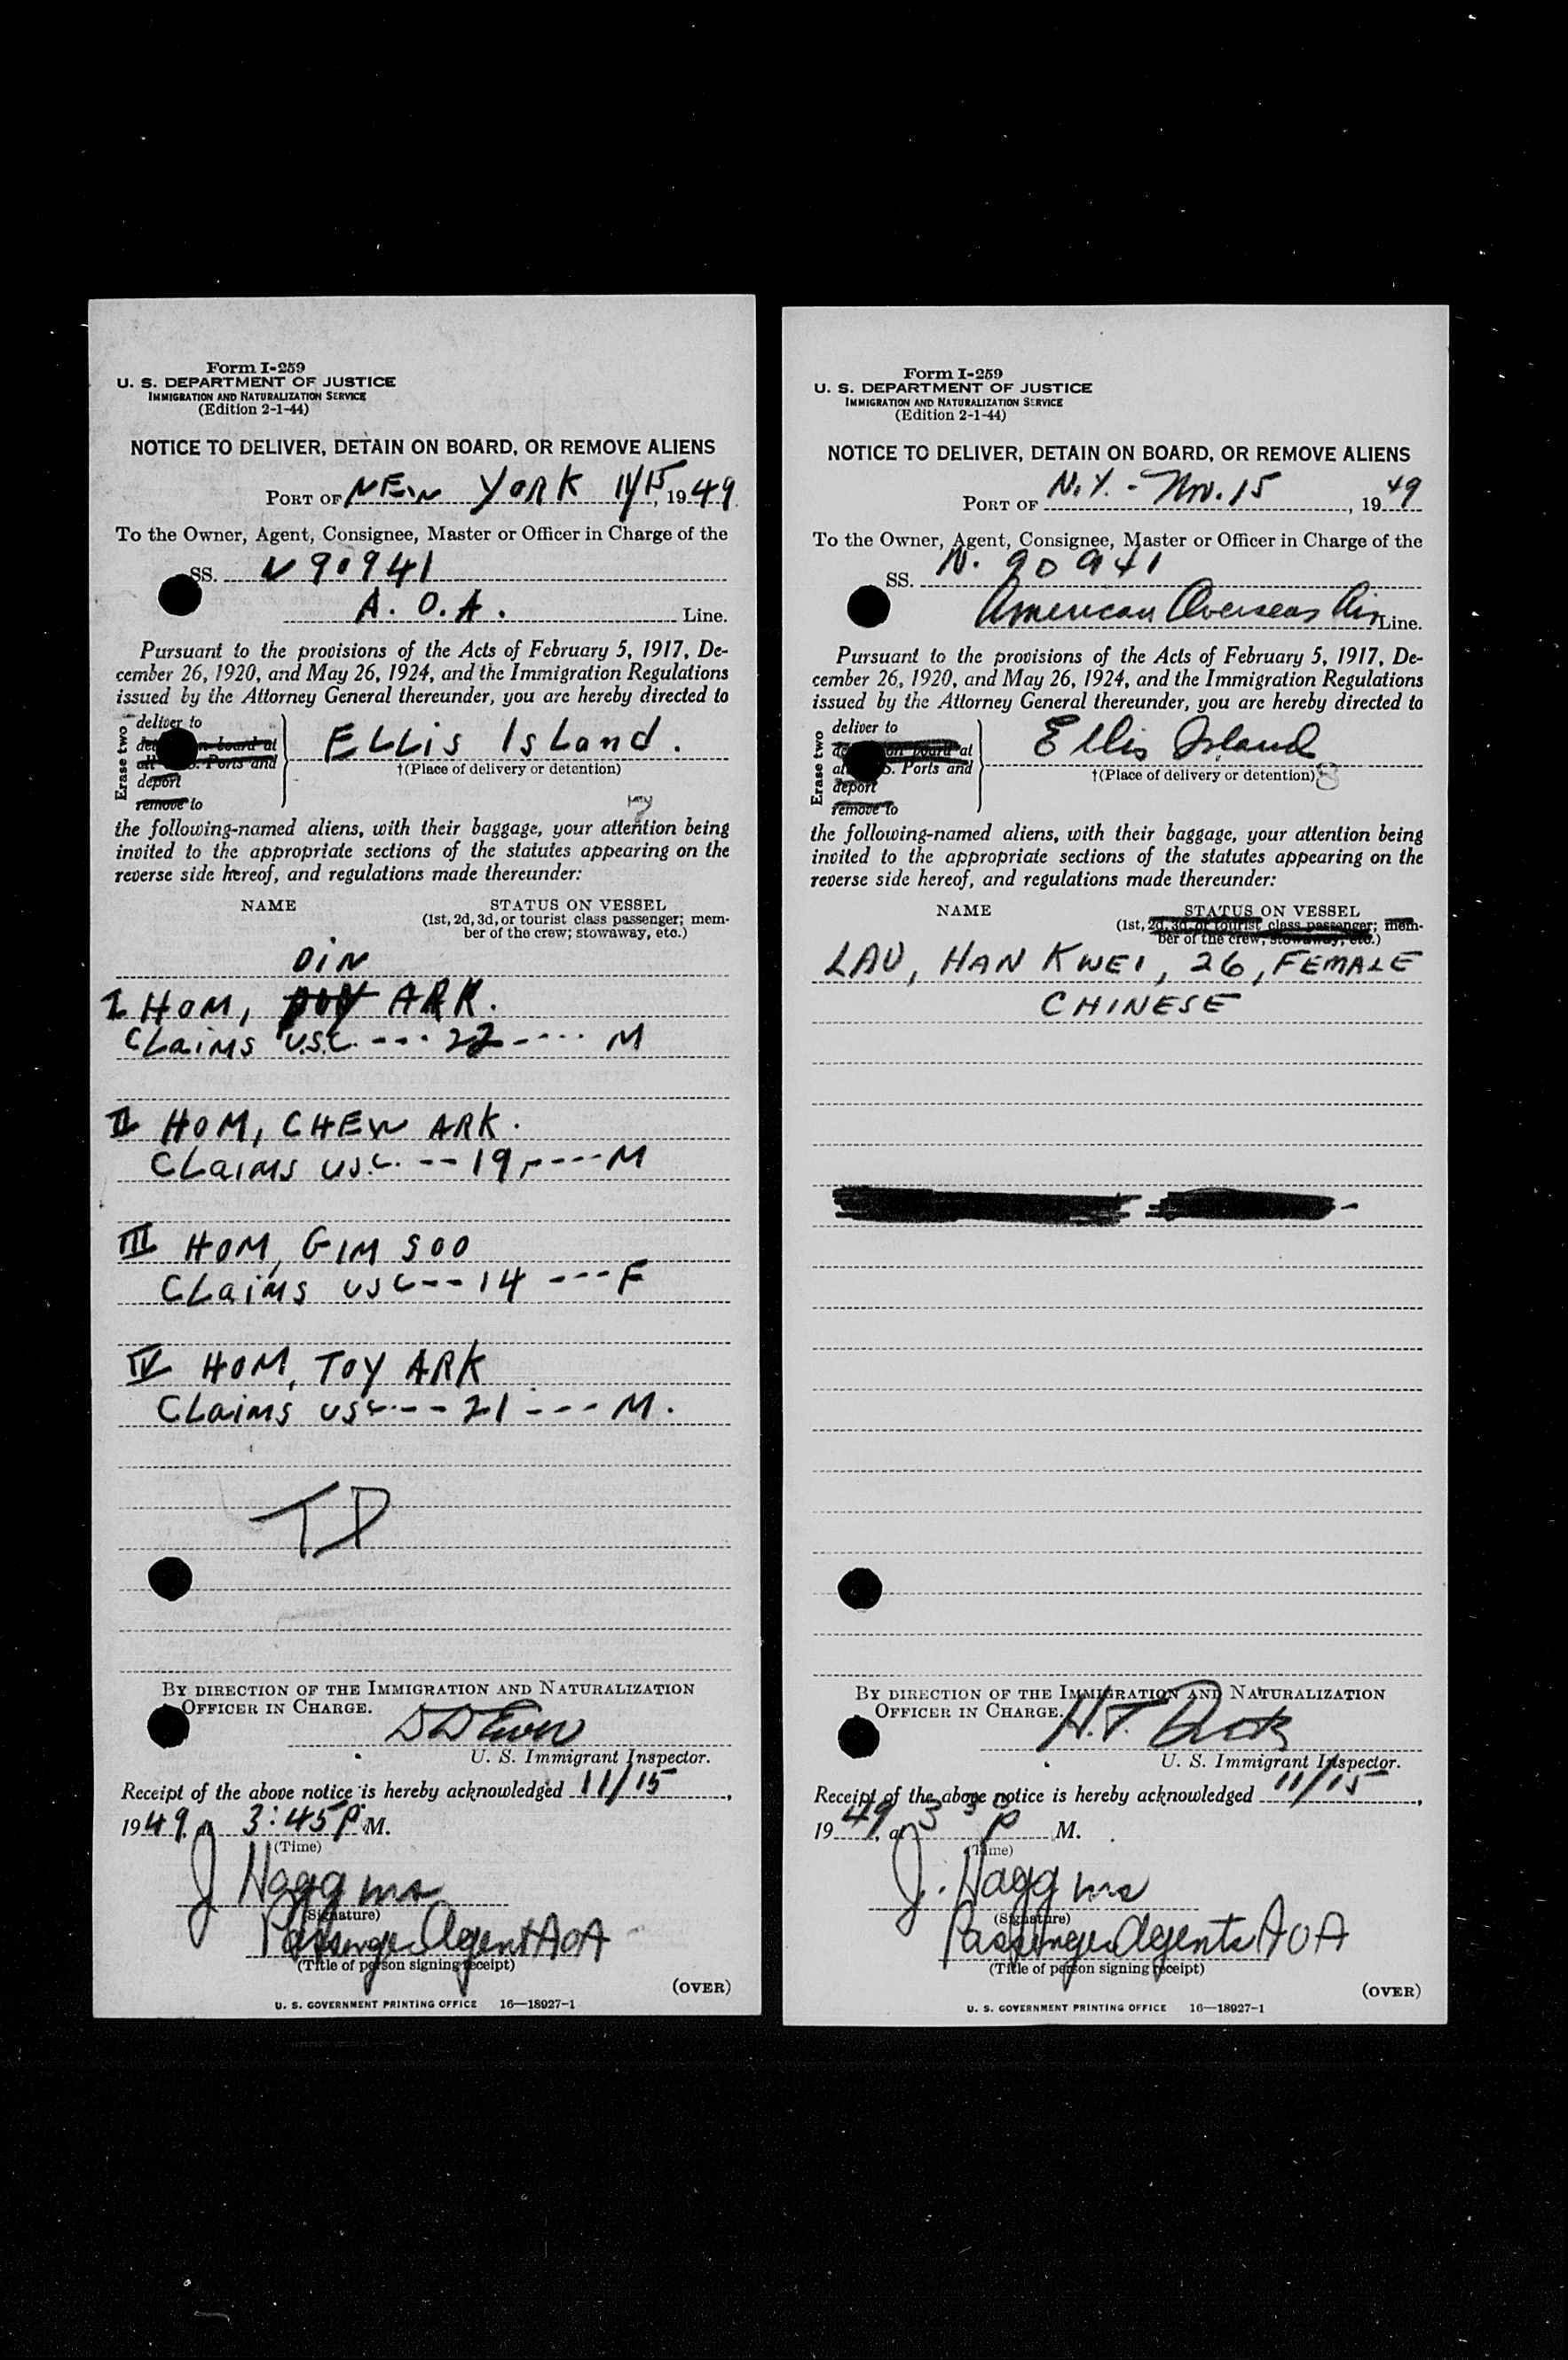 Form I-259
U. S. DEPARTMENT OF JUSTICE
IMMIGRATION AND NATURALIZATION SERVICE
(Edition 2-1-44)
NOTICE TO DELIVER, DETAIN ON BOARD, OR REMOVE ALIENS
PORT OF NEW YORK 11/15, 1949
To the Owner, Agent, Consignee, Master or Officer in Charge of the
SS. N90941
A. O. A. Line.
Pursuant to the provisions of the Acts of February 5, 1917, De-
cember 26, 1920, and May 26, 1924, and the Immigration Regulations
issued by the Attorney General thereunder, you are hereby directed to
Erase two
deliver to
on board at
all Ports and
deport
remove to
ELLis IsLand.
†(Place of delivery or detention)
7
the following-named aliens, with their baggage, your attention being
invited to the appropriate sections of the statutes appearing on the
reverse side hereof, and regulations made thereunder:
NAME STATUS ON VESSEL
(1st, 2d, 3d, or tourist class passenger; mem-
ber of the crew; stowaway, etc.)
DIN
I HOM, ARK.
CLaims U.S.C. --- 22 ---- M
II HOM, CHEW ARK.
CLaims USC. -- 19 ---- M
III HOM, GIM SOO
CLaims USC -- 14 --- F
IV HOM, TOY ARK
CLaims USC --- 21 --- M.
TD
BY DIRECTION OF THE IMMIGRATION AND NATURALIZATION
OFFICER IN CHARGE.
U. S. Immigrant Inspector.
Receipt of the above notice is hereby acknowledged 11/15,
1949, at 3:45 P. M.
(Time)
J
(Signature)
Passenger Agent AOA
(Title of person signing receipt)
(OVER)
U. S. GOVERNMENT PRINTING OFFICE 16—18927-1
Form I-259
U. S. DEPARTMENT OF JUSTICE
IMMIGRATION AND NATURALIZATION SERVICE
(Edition 2-1-44)
NOTICE TO DELIVER, DETAIN ON BOARD, OR REMOVE ALIENS
PORT OF N.Y. - Nov. 15, 1949
To the Owner, Agent, Consignee, Master or Officer in Charge of the
SS. N. 90941
American Overseas Air Line.
Pursuant to the provisions of the Acts of February 5, 1917, De-
cember 26, 1920, and May 26, 1924, and the Immigration Regulations
issued by the Attorney General thereunder, you are hereby directed to
Erase two
deliver to
on board at
S. Ports and
deport
remove to
Ellis Island
†(Place of delivery or detention) 8
the following-named aliens, with their baggage, your attention being
invited to the appropriate sections of the statutes appearing on the
reverse side hereof, and regulations made thereunder:
NAME STATUS ON VESSEL
(1st, 2d, 3d, or tourist class passenger; mem-
ber of the crew, stowaway, etc.)
LAU, HAN KWEI, 26, FEMALE
CHINESE
BY DIRECTION OF THE IMMIGRATION AND NATURALIZATION
OFFICER IN CHARGE.
H.T.
U. S. Immigrant Inspector.
Receipt of the above notice is hereby acknowledged 11/15,
1949, at 3 P M.
(Time)
J.
(Signature)
Passenger Agents AOA
(Title of person signing receipt)
(OVER)
U. S. GOVERNMENT PRINTING OFFICE 16—18927-1